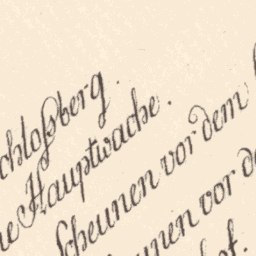 chloßberg.
ne Hauptwache.
Scheunen vor dem
unen vor d